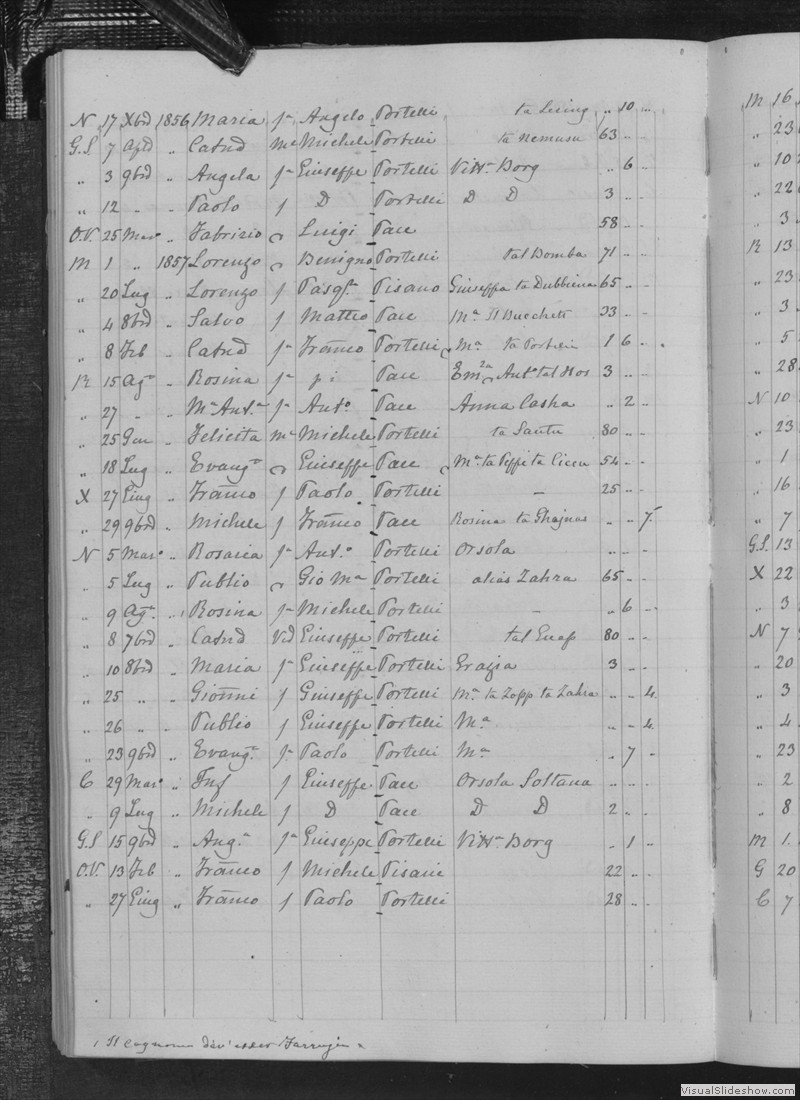 N 17 Xbre 1856 Maria fa Angelo Portelli ta Lucing .. 10 ..
G.S. 7 Aple .. Catnd me Michele Portelli ta Nemusu 63 .. ..
.. 3 9bre .. Angela fa Giuseppe Portelli Vitta Borg .. 6 ..
.. 12 .. .. Paolo f D Portelli D D 3 .. ..
O.V. 25 Marzo .. Fabrizio Luigi Pace 58 .. ..
M 1 .. 1857 Lorenzo Benigno Portelli tal Bomba 71 .. ..
.. 20 Lug .. Lorenzo f Pasqle Pisano Giuseppa ta Dubbiena 65 .. ..
.. 4 8bre .. Salvo f Matteo Pace Ma 33 .. ..
.. 8 Feb .. Catnd fa Franco Portelli Ma ta Portelli 1 6 ..
R 15 Ago .. Rosina fa pi Pace Anto tal Hos 3 .. ..
.. 27 .. .. Ma Anta fa Anto Pace Anna Casha .. 2 ..
.. 25 Gen .. Felicita me Michele Portelli ta Santu 80 .. ..
.. 18 Lug .. Evangta Giuseppe Pace Ma ta Peppi ta Ciccu 54 .. ..
X 27 Giug .. Franco f Paolo Portelli – 25 .. ..
.. 29 9bre .. Michele f Franco Pace Rosina ta Ghajnas .. .. 7
N 5 Marzo .. Rosaria fa Anto Portelli Orsola .. .. ..
.. 5 Lug .. Publio Gio Ma Portelli alias Zahra 65 .. ..
.. 9 Ago .. Rosina fa Michele Portelli – .. 6 ..
.. 8 7bre .. Catnd Ved Giuseppe Portelli 80 .. ..
.. 10 8bre .. Maria fa Giuseppe Portelli Grazia 3 .. ..
.. 25 .. .. Gionni f Giuseppe Portelli Ma ta Zopp ta Zahra .. .. 4
.. 26 .. .. Publio f Giuseppe Portelli Ma .. .. 4
.. 23 9bre .. Evangta fa Paolo Portelli Ma .. 7 ..
C 29 Marzo .. Inf f Giuseppe Pace Orsola Soltana .. .. ..
.. 9 Lug .. Michele f D Pace D D 2 .. ..
G.S 15 9bre .. Anga fa Giuseppe Portelli Vitta Borg .. 1 ..
O.V. 13 Feb .. Franco f Michele Pisani 22 .. ..
.. 27 Giug .. Franco f Paolo Portelli 28 .. ..
Il cognome dev'esser Farrugia
M 16
.. 23
.. 10
.. 22
.. 3
R 13
.. 23
.. 3
.. 5
.. 28
N 10
.. 23
.. 1
.. 16
.. 7
G.S. 13
X 22
.. 3
N 7
.. 20
.. 3
.. 4
.. 23
.. 2
.. 8
M 1
G 20
C 7
VisualSlideshow.com